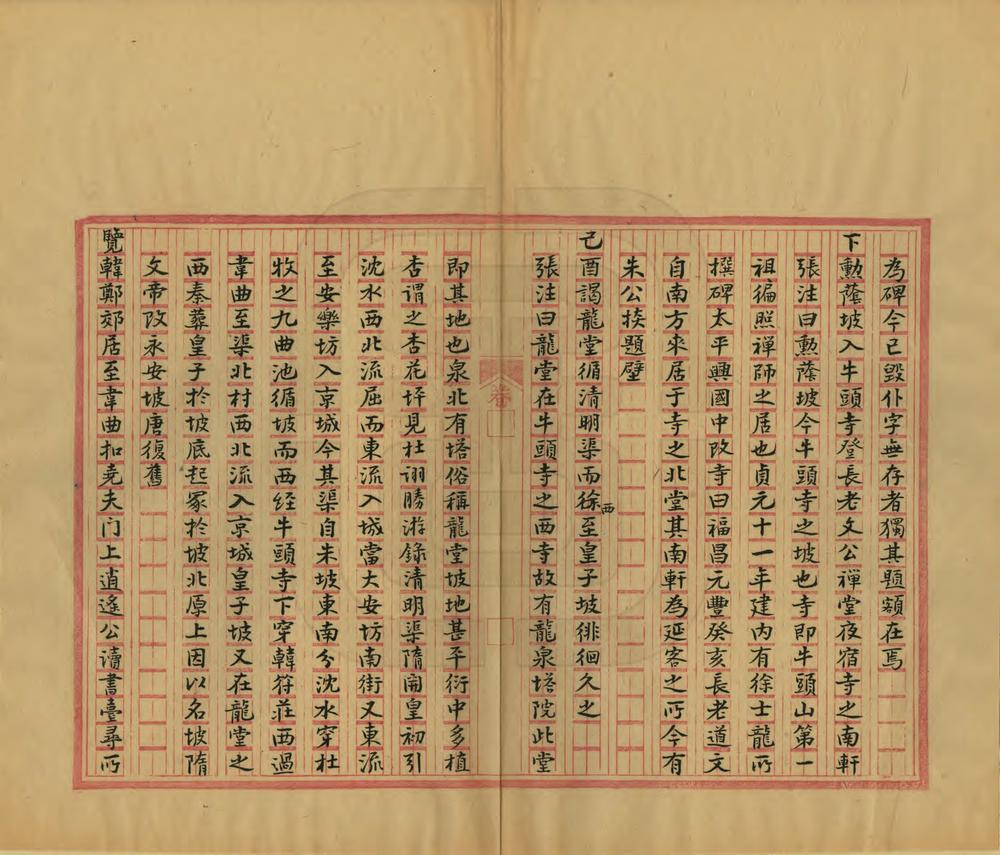 為碑今已毀仆字無存者獨其題額在焉
下勲蔭坡入牛頭寺登長老文公禪堂夜宿寺之南軒
張注曰勲蔭坡今牛頭寺之坡也寺即牛頭山第一
祖徧照禪師之居也貞元十一年建內有徐士龍所
撰碑太平興國中改寺曰福昌元豐癸亥長老道文
自南方來居于寺之北堂其南軒為延客之所今有
朱公掞題壁
己酉謁龍堂循清明渠而徐西至皇子坡徘徊久之
張注曰龍堂在牛頭寺之西寺故有龍泉塔院此堂
卷
即其地也泉北有塔俗稱龍堂坡地甚平衍中多植
杏謂之杏花坪見杜詡勝游錄清明渠隋開皇初引
沈水西北流屈而東流入城當大安坊南街又東流
至安樂坊入京城今其渠自朱坡東南分沈水穿杜
牧之九曲池循坡而西經牛頭寺下穿韓符莊西過
韋曲至渠北村西北流入京城皇子坡又在龍堂之
西秦葬皇子於坡底起冢於坡北原上因以名坡隋
文帝改永安坡唐復舊
覽韓鄭郊居至韋曲扣堯夫门上逍遙公讀書臺尋所